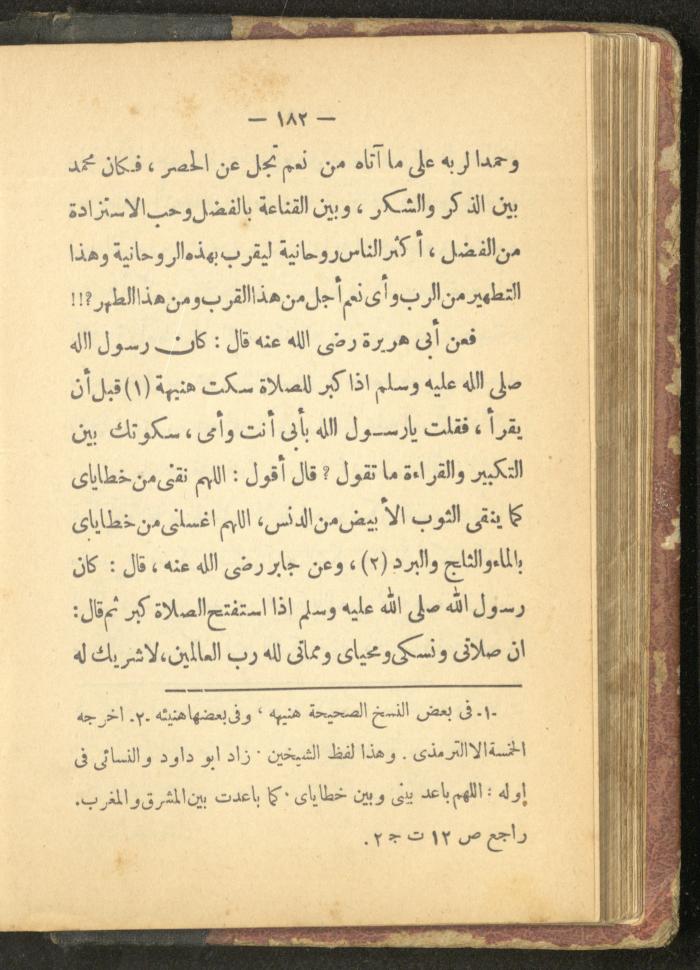 — ١٨٢ —
وحمدا لربه على ما آتاه من نعم تجل عن الحصر ، فكان محمد
بين الذكر والشكر ، وبين القناعة بالفضل وحب الاستزادة
من الفضل ، أكثر الناس روحانية ليقرب بهذه الروحانية وهذا
التطهير من الرب وأى نعم أجل من هذا القرب ومن هذا الطهر ؟!!
فعن أبى هريرة رضى الله عنه قال : كان رسول الله
صلى الله عليه وسلم اذا كبر للصلاة سكت هنيهة (١) قبل أن
يقرأ ، فقلت يارسول الله بأبى أنت وأمى ، سكوتك بين
التكبير والقراءة ما تقول ؟ قال أقول : اللهم نقنى من خطاياى
كما ينقى الثوب الأبيض من الدنس ، اللهم اغسلنى من خطاياى
بالماء والثلج والبرد (٢) ، وعن جابر رضى الله عنه ، قال : كان
رسول الله صلى الله عليه وسلم اذا استفتح الصلاة كبر ثم قال :
ان صلاتى ونسكى ومحياى ومماتى لله رب العالمين ، لا شريك له
-١- فى بعض النسخ الصحيحة هنيهه ، وفى بعضها هنيئه -٢- اخرجه
الخمسة الا الترمذى . وهذا لفظ الشيخين . زاد ابو داود والنسائى فى
اوله : اللهم باعد بينى وبين خطاياى . كما باعدت بين المشرق والمغرب .
راجع ص ١٢ ت ج ٢ .